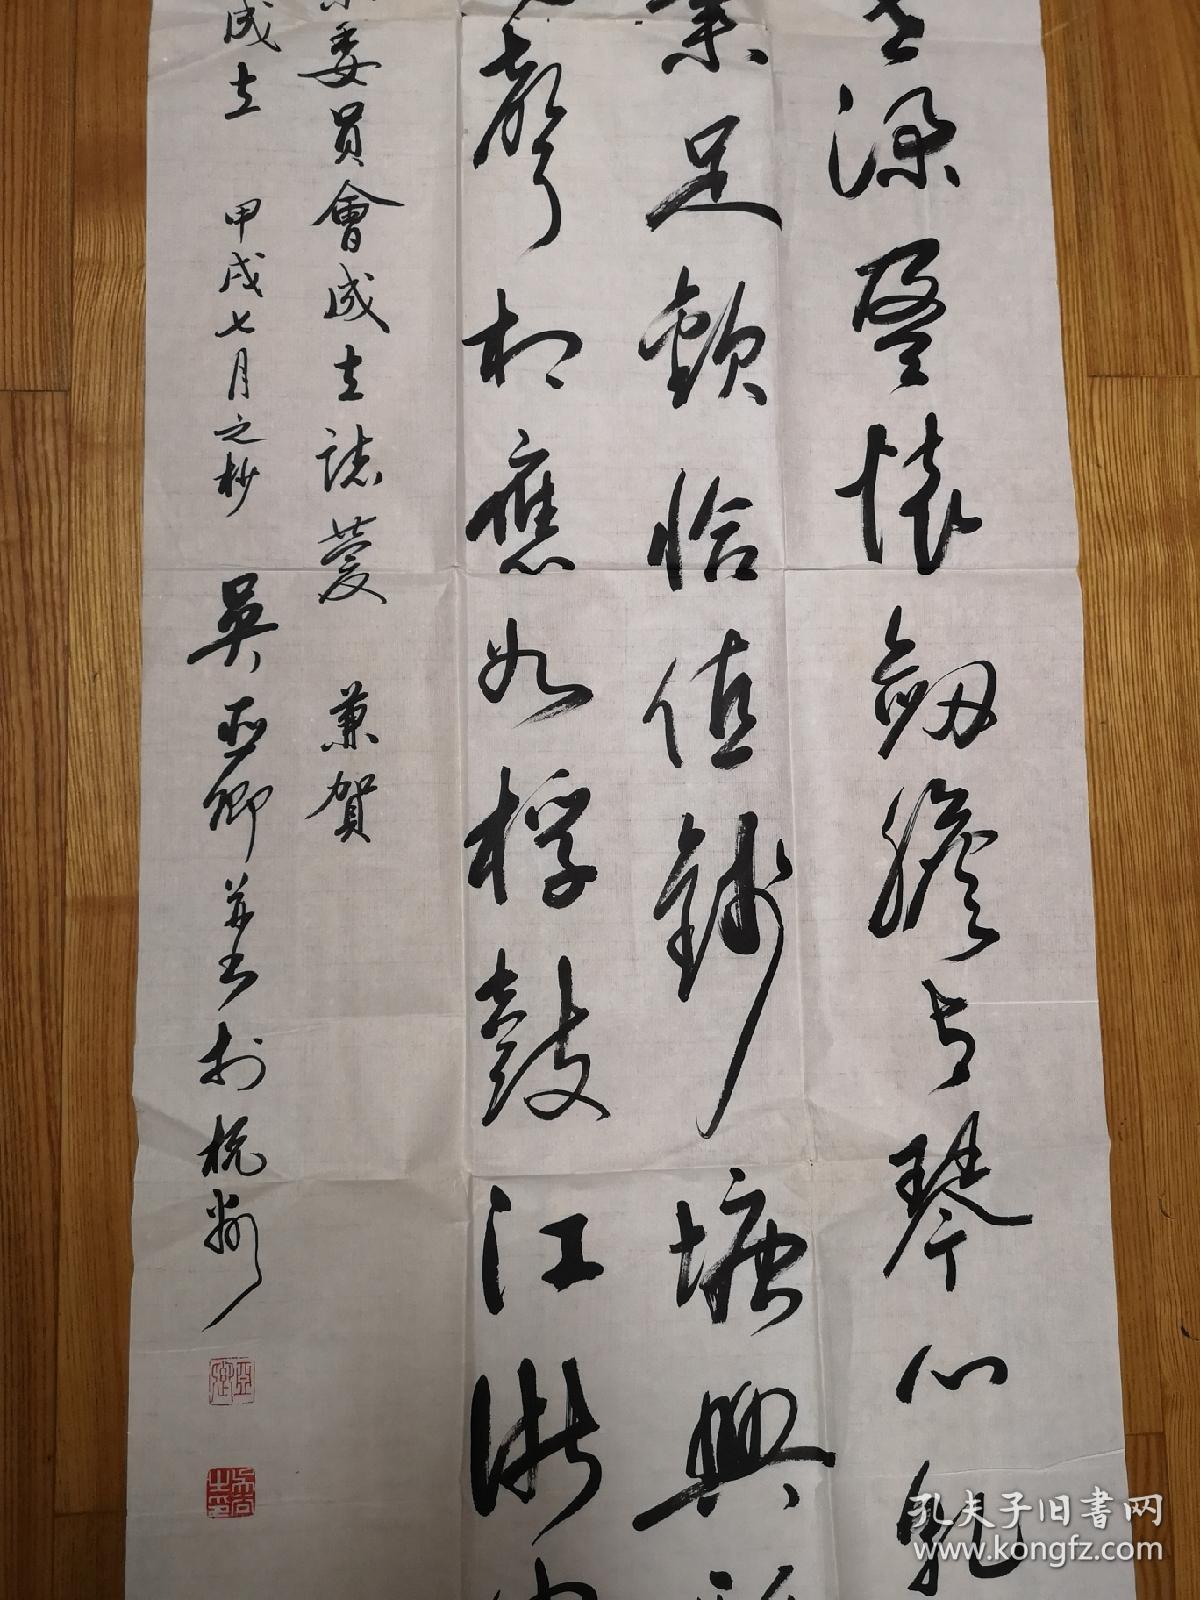 深 懷劍膽與琴心亂
業足欽恰值錢塘興
聲相應如桴鼓江浙
委員會成立誌慶 兼賀
成立 甲戌七月之杪 吳亞卿並書於杭州
孔夫子旧书网
www.kongfz.com